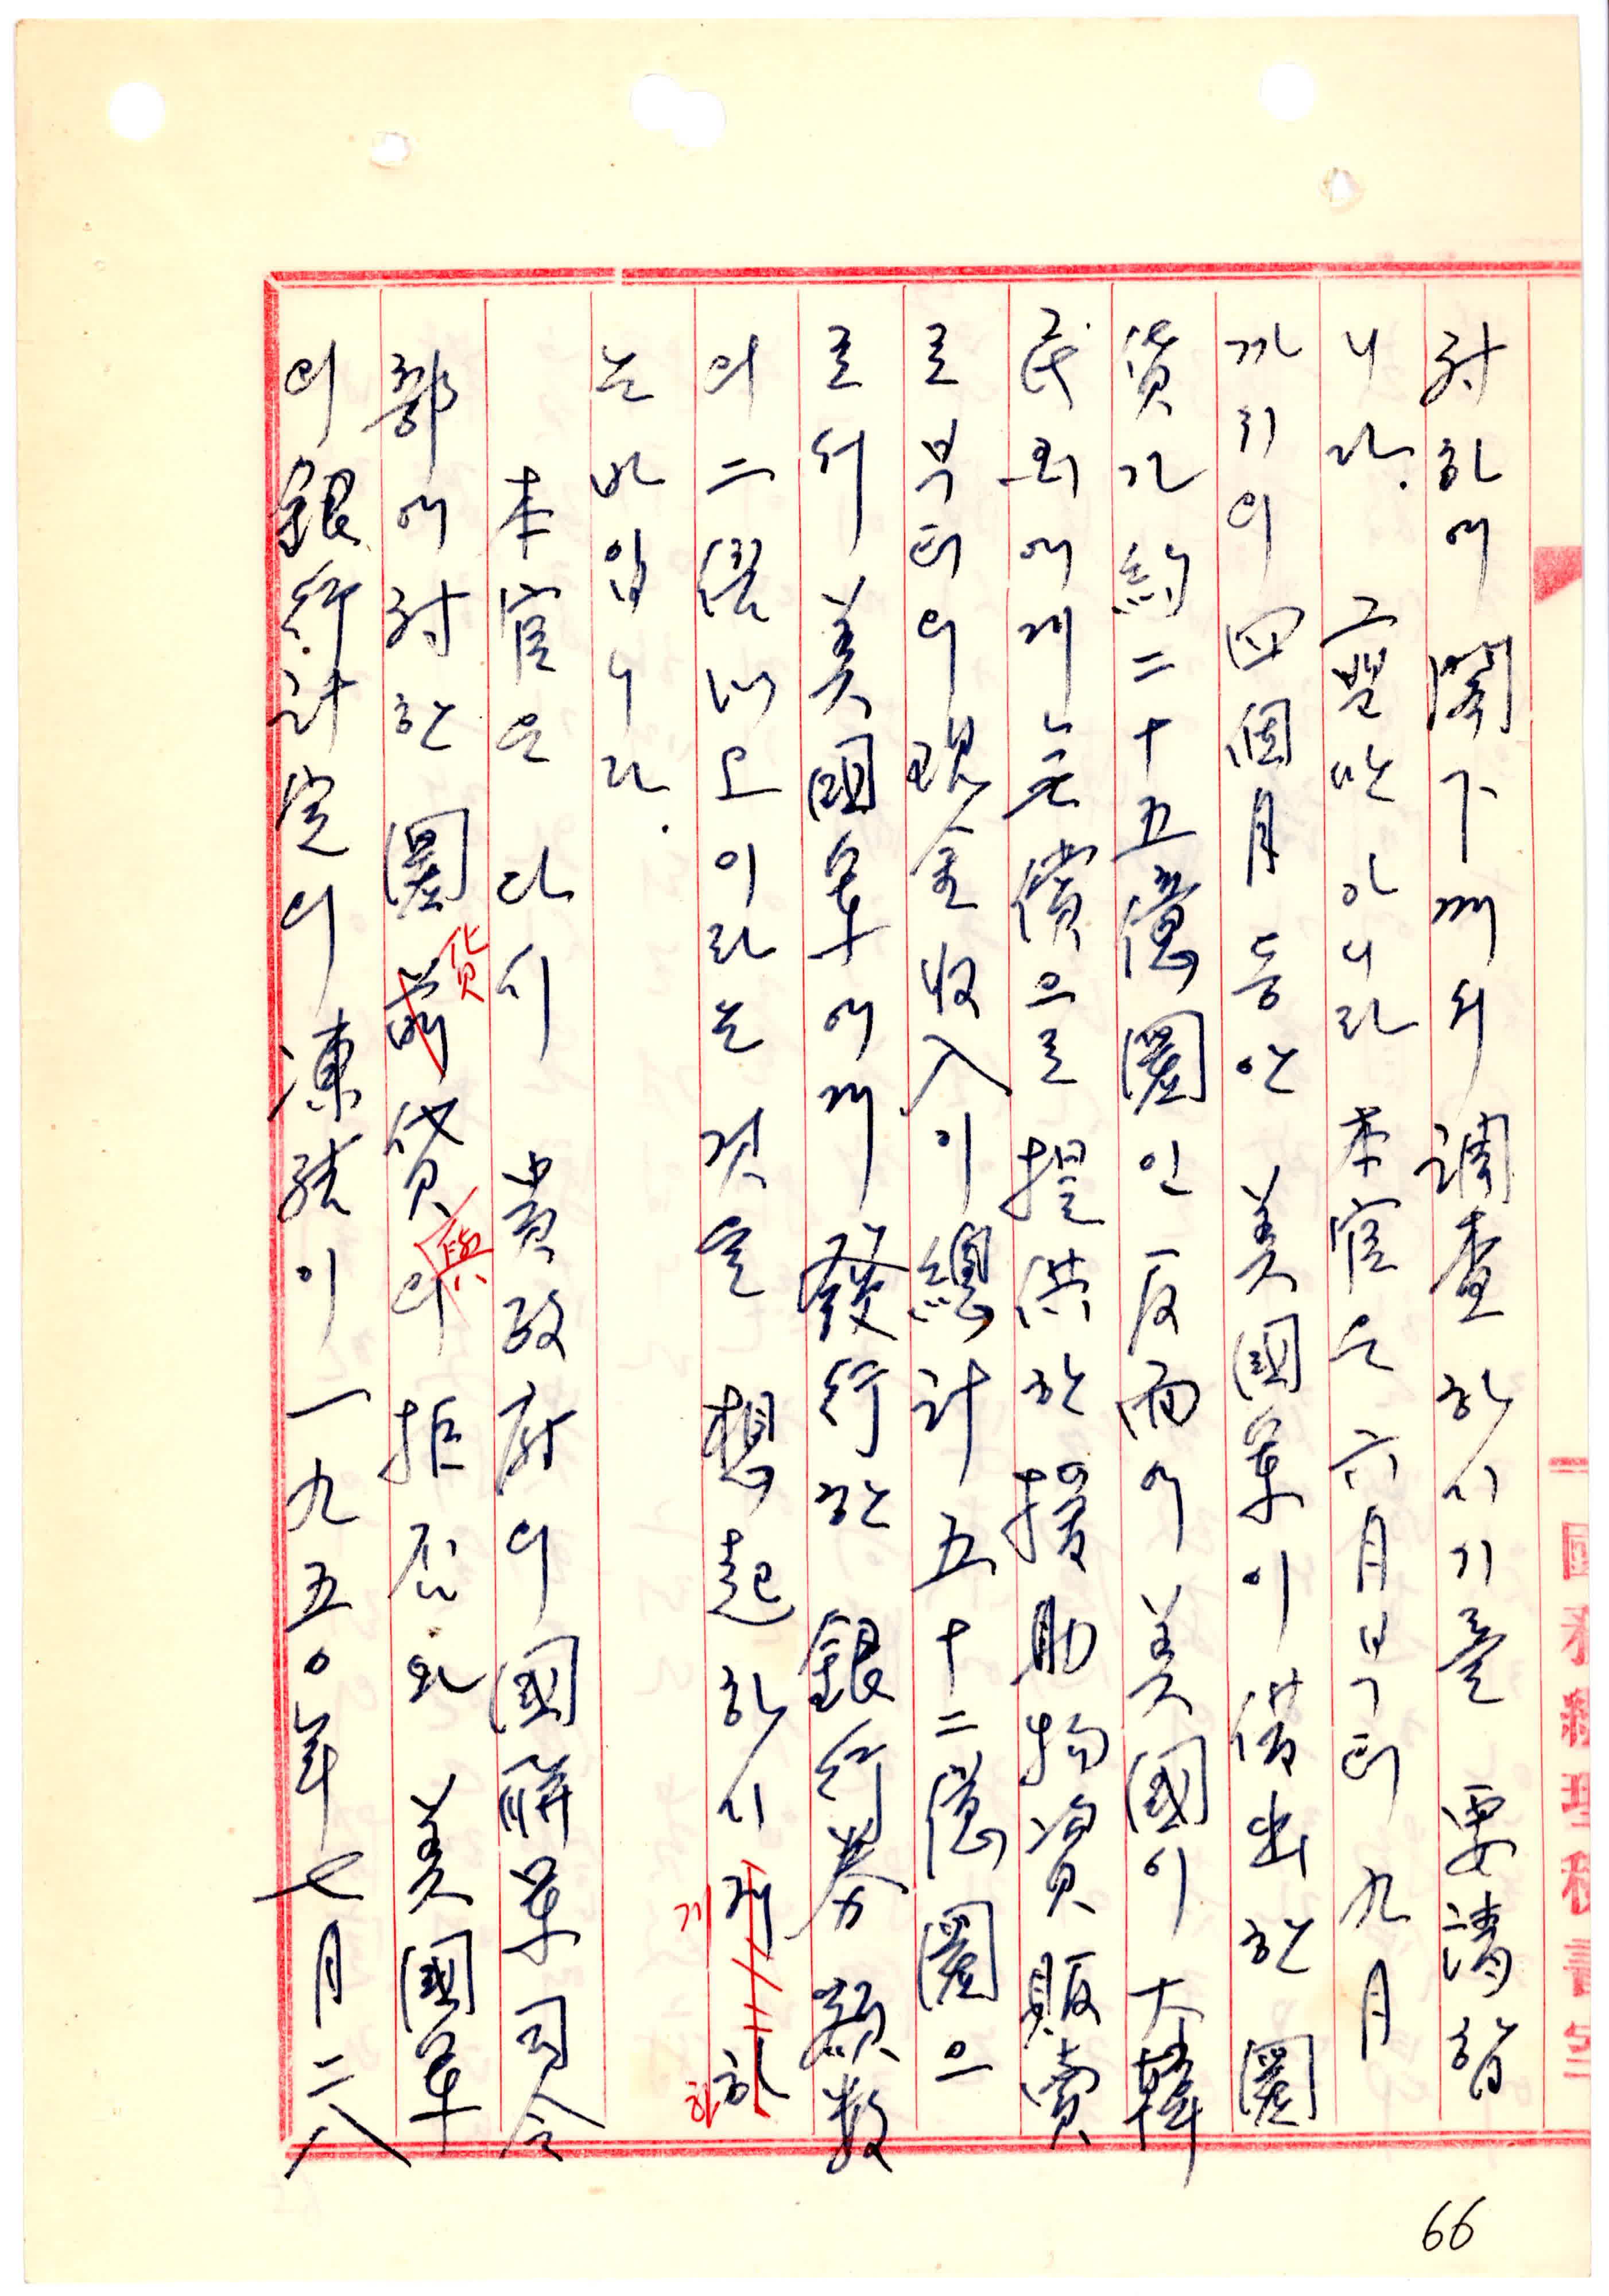 國務總理秘書室
對하여 閣下께서 調査하시기를 要請합
니다. 그뿐만 아니라 本官은 六月부터 九月
까지의 四個月동안 美國軍이 借出한 圜
貨가 約二十五億圜인 反面에 美國이 大韓
民國에게 無償으로 提供한 援助物資販賣
로부터의 現金收入이 總計五十二億圜으
로서 美國軍에게 發行한 銀行券額數
의 二倍以上이라는 것을 想起하시기
는바입니다.
本官은 다시 貴政府의 國聯軍司令
部에 對한 圜貨貸與의 拒否와 美國軍
의 銀行計定의 凍結이 一九五〇年七月二八
66